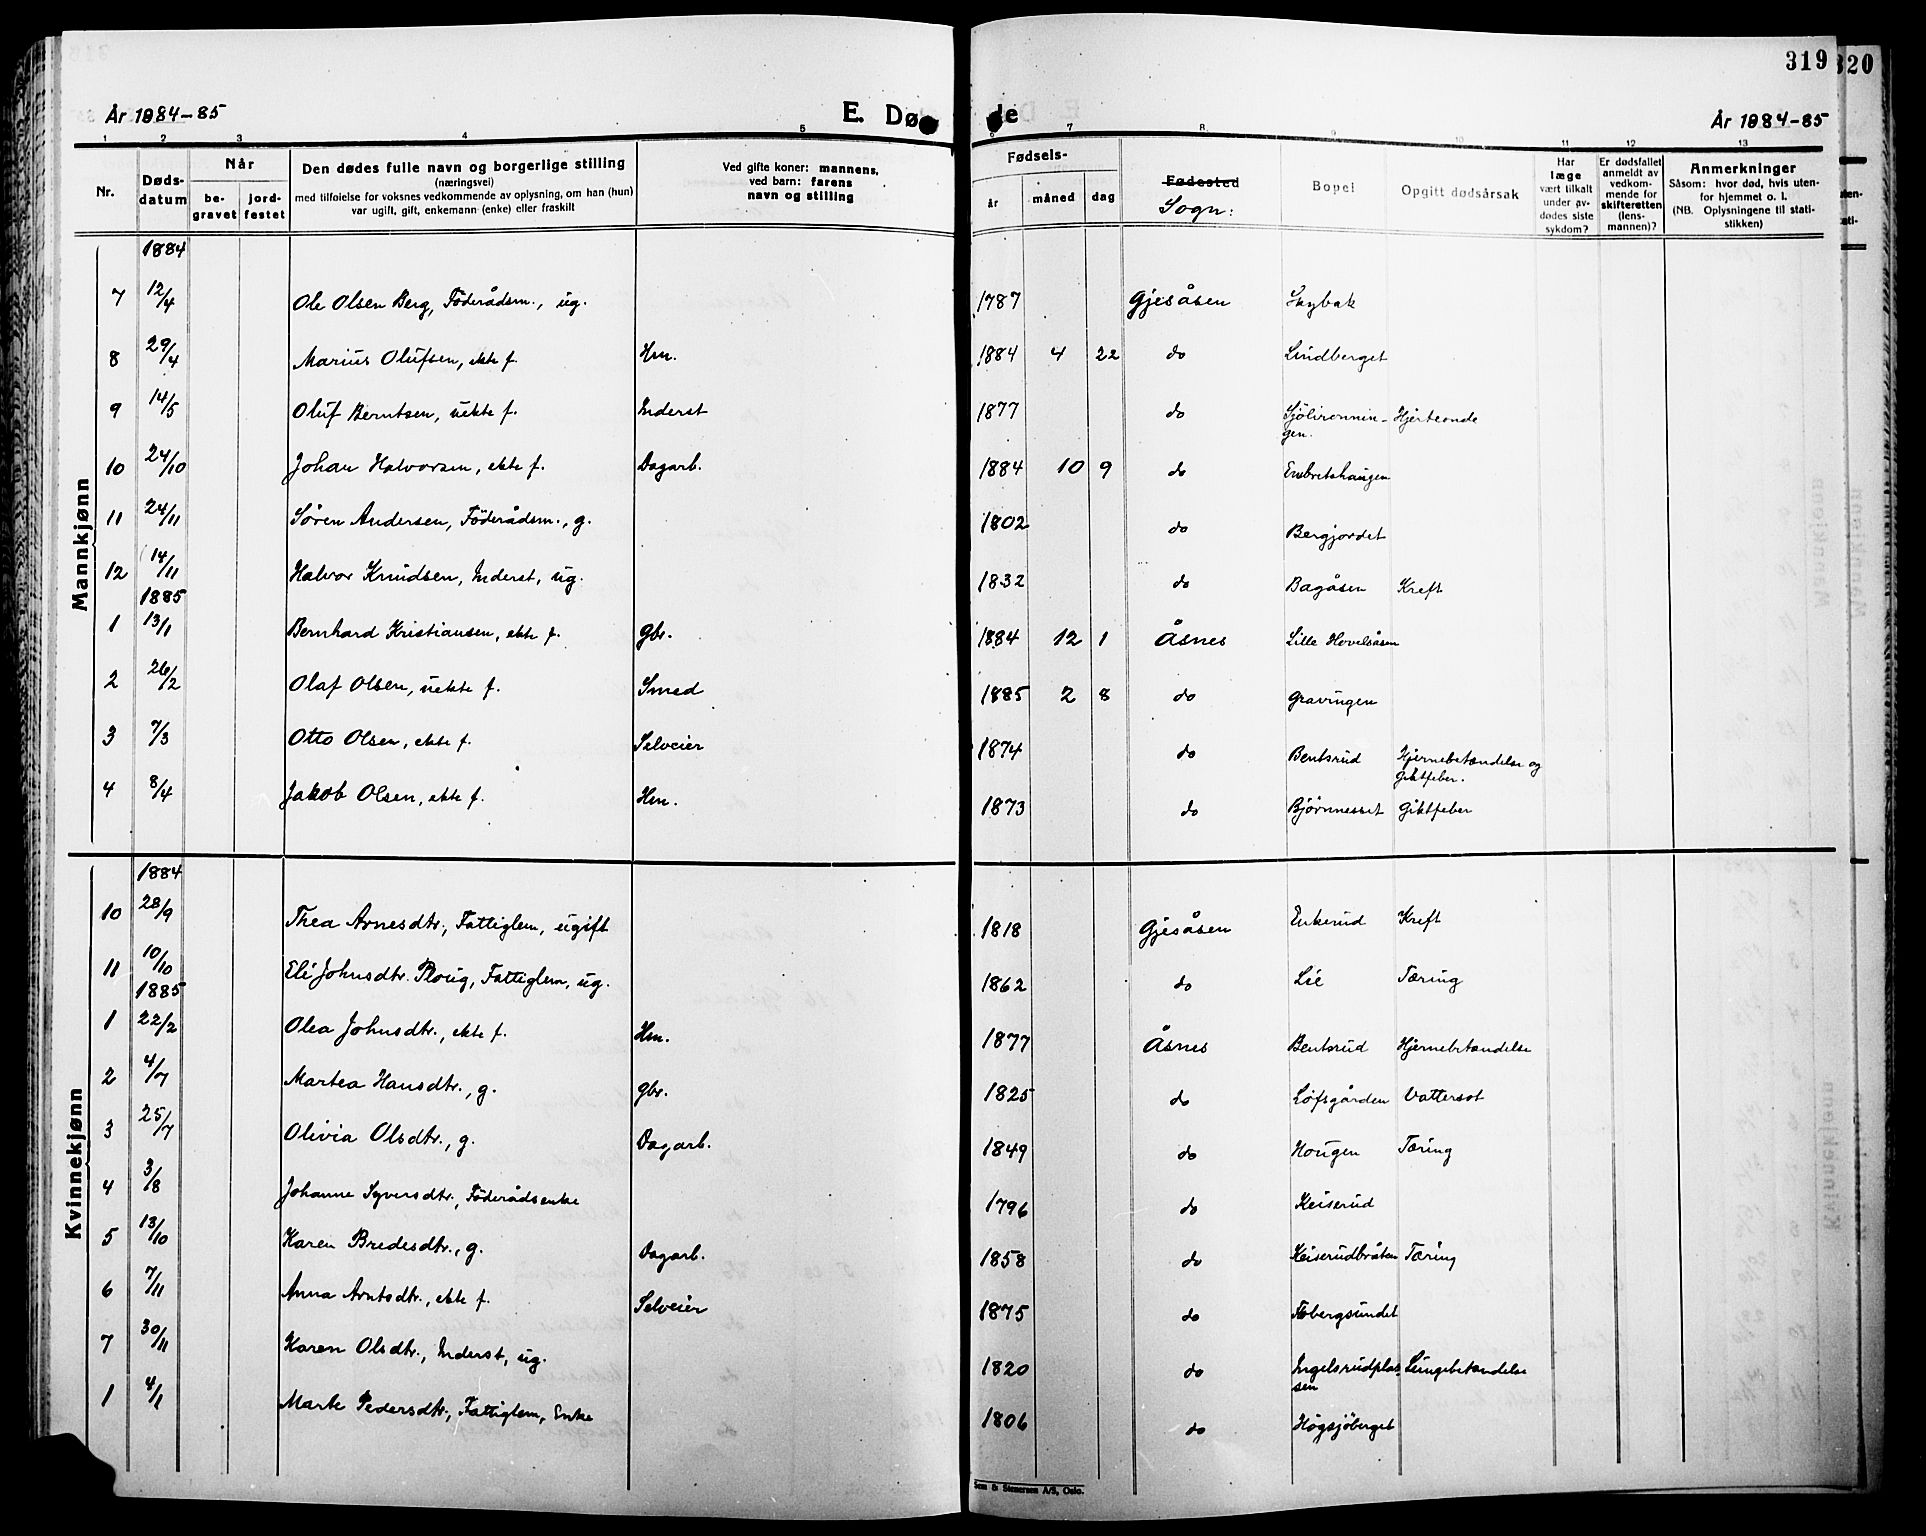 319
320
År 1884-85
E. Døde
År 1884-85
1 2 3 4 5 6 7 8 9 10 11 12 13
Nr.
Døds-datum
Når
be-gravet
jord-festet
Den dødes fulle navn og borgerlige stilling
(næringsvei)
med tilføielse for voksnes vedkommende av oplysning, om han (hun)
var ugift, gift, enkemann (enke) eller fraskilt
Ved gifte koner: mannens,
ved barn: farens
navn og stilling
Fødsels-
år måned dag
Fødested
Sogn:
Bopel
Opgitt dødsårsak
Har læge vært tilkalt under avdødes siste sykdom?
Er dødsfallet anmeldt av vedkommende for skifteretten (lensmannen)?
Anmerkninger
Såsom: hvor død, hvis uten-
for hjemmet o. l.
(NB. Oplysningene til stati-
stikken)
Mannkjønn
1884
7 12/4 Ole Olsen Berg, Föderådsm., ug. 1787 Gjesåsen Skybak
8 29/4 Marius Olufsen, ekte f. Hm. 1884 4 22 do Lindberget
9 14/5 Oluf Berntsen, uekte f. Inderst 1877 do Sjölironnin-gen. Hjerteonde
10 24/10 Johan Halvorsen, ekte f. Dagarb. 1884 10 9 do Embretshaugen
11 24/11 Søren Andersen, Föderådsm., g. 1802 do Bergjordet
12 14/11 Halvor Knudsen, Inderst, ug. 1832 do Bagåsen Kreft
1885
1 13/1 Bernhard Kristiansen, ekte f. Gbr. 1884 12 1 Åsnes Lille Hovelsåsen
2 26/2 Olaf Olsen, uekte f. Smed 1885 2 8 do Gravingen
3 7/3 Otto Olsen, ekte f. Selveier 1874 do Bentsrud Hjernebetændelse og Giktfeber.
4 8/4 Jakob Olsen, ekte f. Hm. 1873 do Bjørnnesset Giktfeber
Kvinnekjønn
1884
10 28/9 Thea Arnesdtr., Fattiglem, ugift 1818 Gjesåsen Enkerud Kreft
11 10/10 Eli Johnsdtr. Ploug, Fattiglem, ug. 1862 do Lie Tæring
1885
1 22/2 Olea Johnsdtr., ekte f. Hm. 1877 Åsnes Bentsrud Hjernebetændelse
2 4/7 Martea Hansdtr., g. Gbr. 1825 do Löfsgården Vattersot
3 25/7 Olivia Olsdtr., g. Dagarb. 1849 do Hougen Tæring
4 3/8 Johanne Syversdtr., Föderådsenke 1796 do Keiserud
5 13/10 Karen Bredesdtr., g. Dagarb. 1858 do Keiserudbråten Tæring
6 7/11 Anna Arntsdtr., ekte f. Selveier 1875 do Fabergsundet
7 30/11 Karen Olsdtr., Inderst, ug. 1820 do Ingelsrudplas-sen Lungebetændelse
1 4/1 Marte Pedersdtr., Fattiglem, Enke 1806 do Högsjöberget
Sem & Stenersen A/S, Oslo.